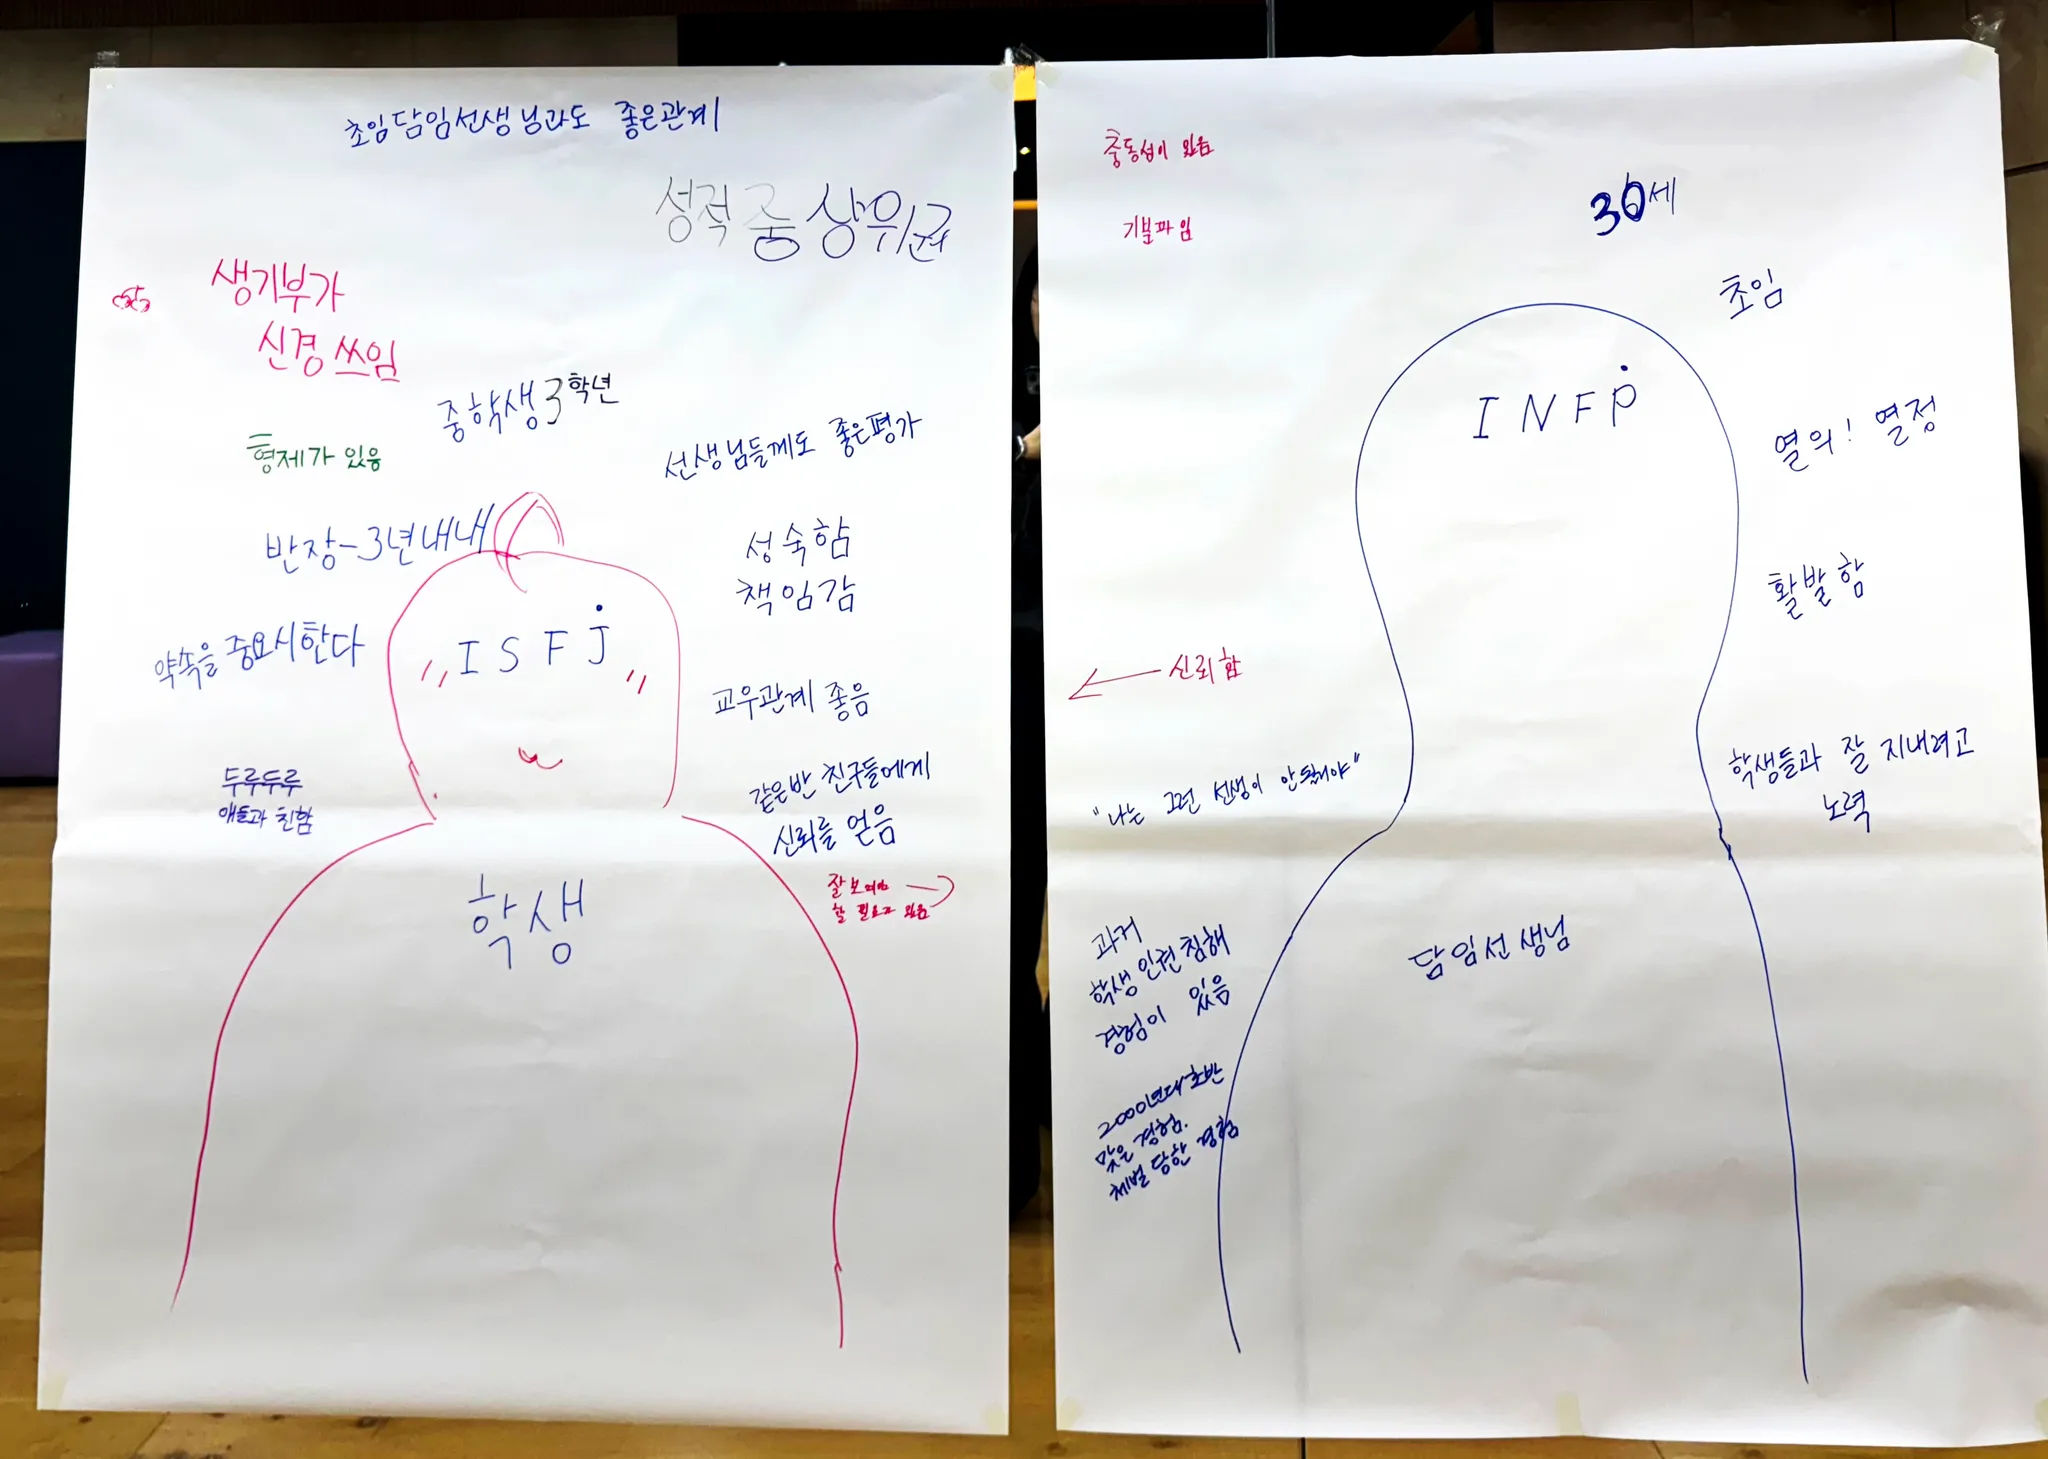 초임담임선생님과도 좋은관계
성적 중상위권
생기부가
신경 쓰임
중학생 3학년
형제가 있음
선생님들께도 좋은평가
반장-3년내내
성숙함
책임감
ISFJ
약속을 중요시한다
교우관계 좋음
두루두루
애들과 친함
같은반 친구들에게
신뢰를 얻음
잘보여야
할 필요가 있음
학생
충동성이 있음
기분파임
30세
초임
INFP
열의! 열정
활발함
신뢰함
"나는 그런 선생이 안될거야"
학생들과 잘 지내려고
노력
과거
학생인권침해
경험이 있음
담임선생님
2000년대초반
맞은경험.
체벌 당한 경험